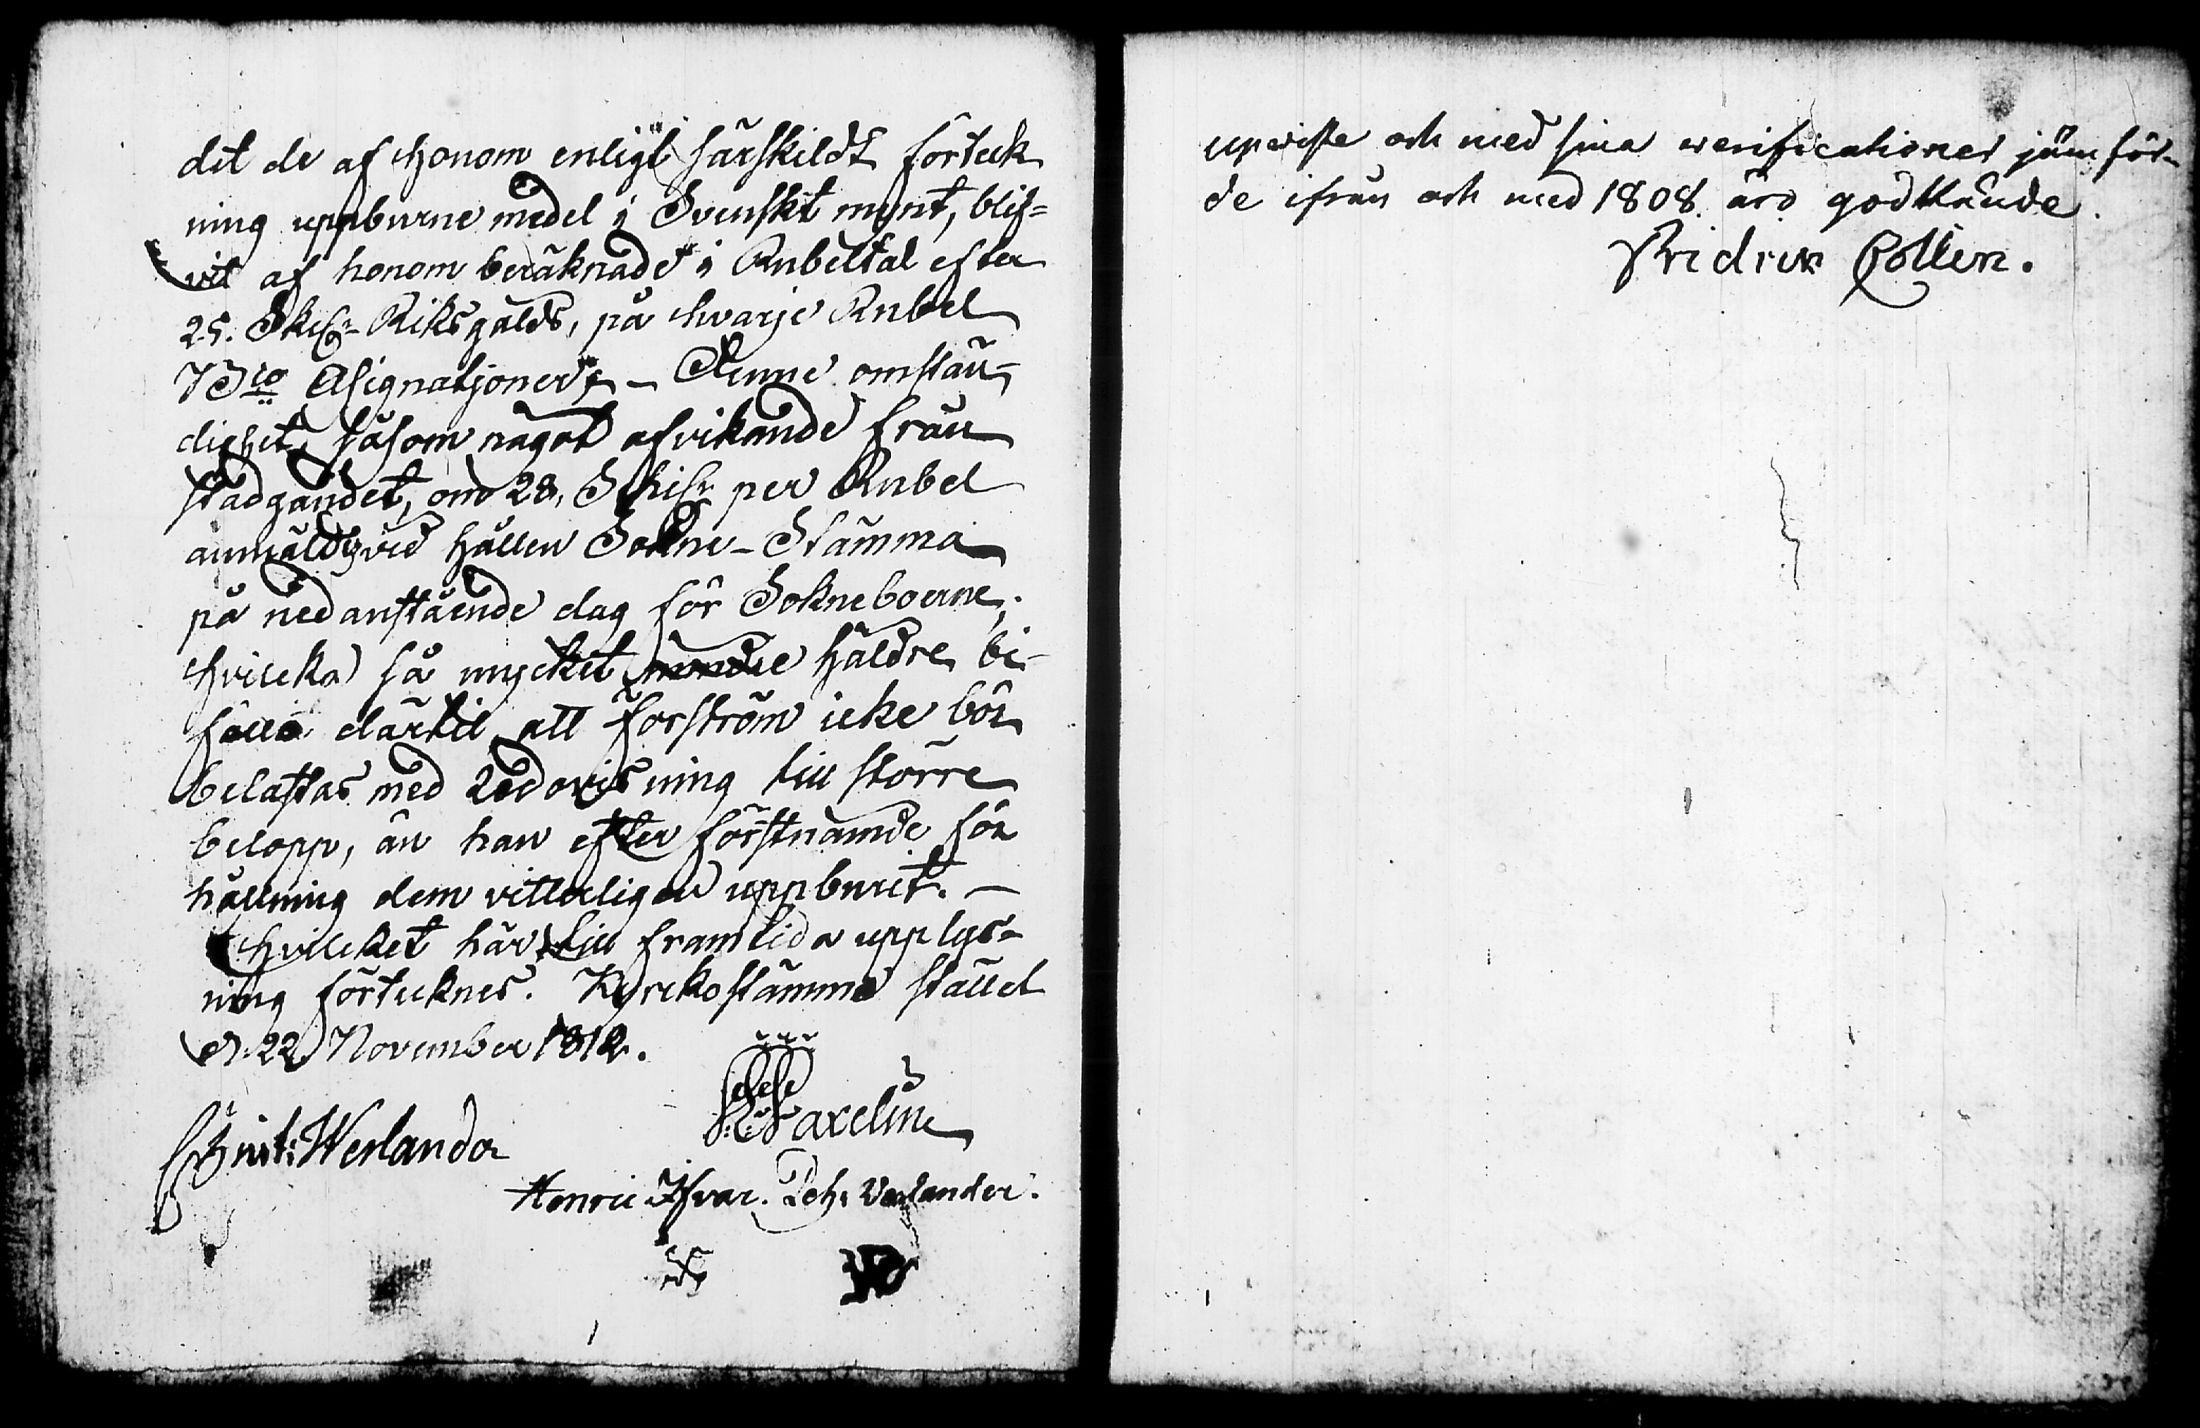 det de af honom enligt särskildt förteck
ning uppburne medel i Svenskt mynt, blif=
vit af honom beräknade i Rubeltal efter
25. Skillr Riksgälds, på hvarje Rubel
Bco Assignatjoner, – Denne omstän=
dighet, såsom något afvikande från
stadgandet, om 28, Skillr per Rubel
anmäldes vid hållen Sokne-Stämma
på nedanstående dag för Sokneboerne,
hvilcka så mycket håldre bi-
föllo därtil att Forström icke bör
belastas med Redovisning till större
belopp, än han efter förstnämde för
hållning dem vitterligen uppburit. –
Hvilcket här till framtida upplys=
ning förtecknes. Kyrkostämma stället
d. 22 November 1812.
Paxelius
Werlander
Henric Ifvar. Joh: Verlander.
upviste och med sina verificationer jämför-
de ifrån och med 1808. äro godkände.
Fridric Collin.